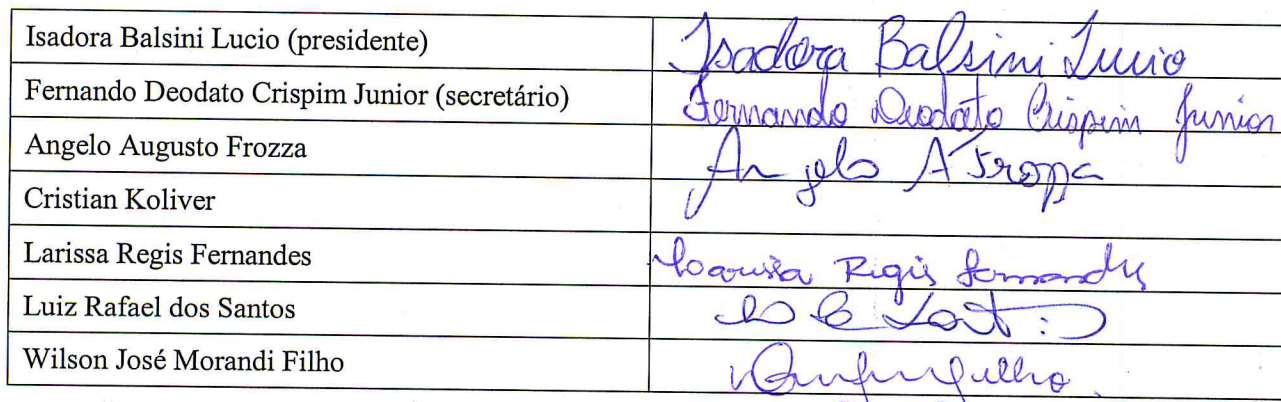 Isadora Balsini Lucio (presidente) Isadora Balsini Lucio
Fernando Deodato Crispim Junior (secretário) Fernando Deodato Crispim Junior
Angelo Augusto Frozza Angelo A Frozza
Cristian Koliver
Larissa Regis Fernandes Larissa Regis Fernandes
Luiz Rafael dos Santos
Wilson José Morandi Filho